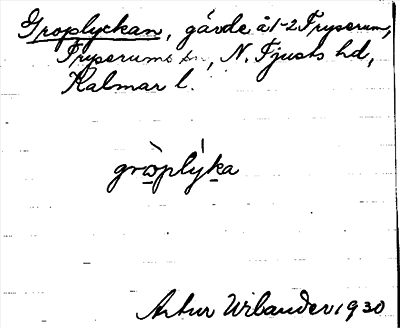 Groplyckan, gärde å 1-2 Fryserum,
Fryserums sn, N. Tjusts hd,
Kalmar l.
gròplýka
Artur Wilander 1930